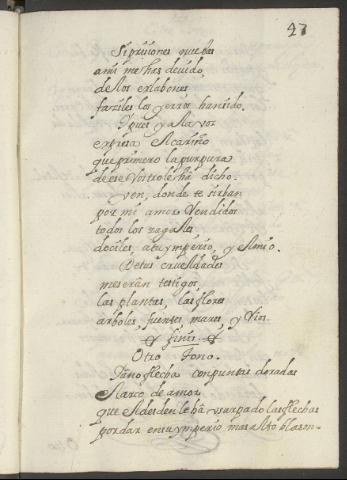 47
Si prisiones quiebro
a mi me has deuido,
de los eslabones
faziles los yerros han sido.
Y pues ya la voz
expira el cariño
que primero la purpura
de ese Rostro le ha dicho.
ven, donde te sirban
por mi amor Vendidos
todos los zagales
dociles, a tu ymperio, y
De tus crueldades
me seran testigos,
las plantas, las flores
arboles, fuentes mares, y Rios.
finis
Otro Tono.
Ya no flecha con puntas doradas
el arco de amor
que el desden le há vsurpado las flechas
por dar en su ymperio mas alto blason.